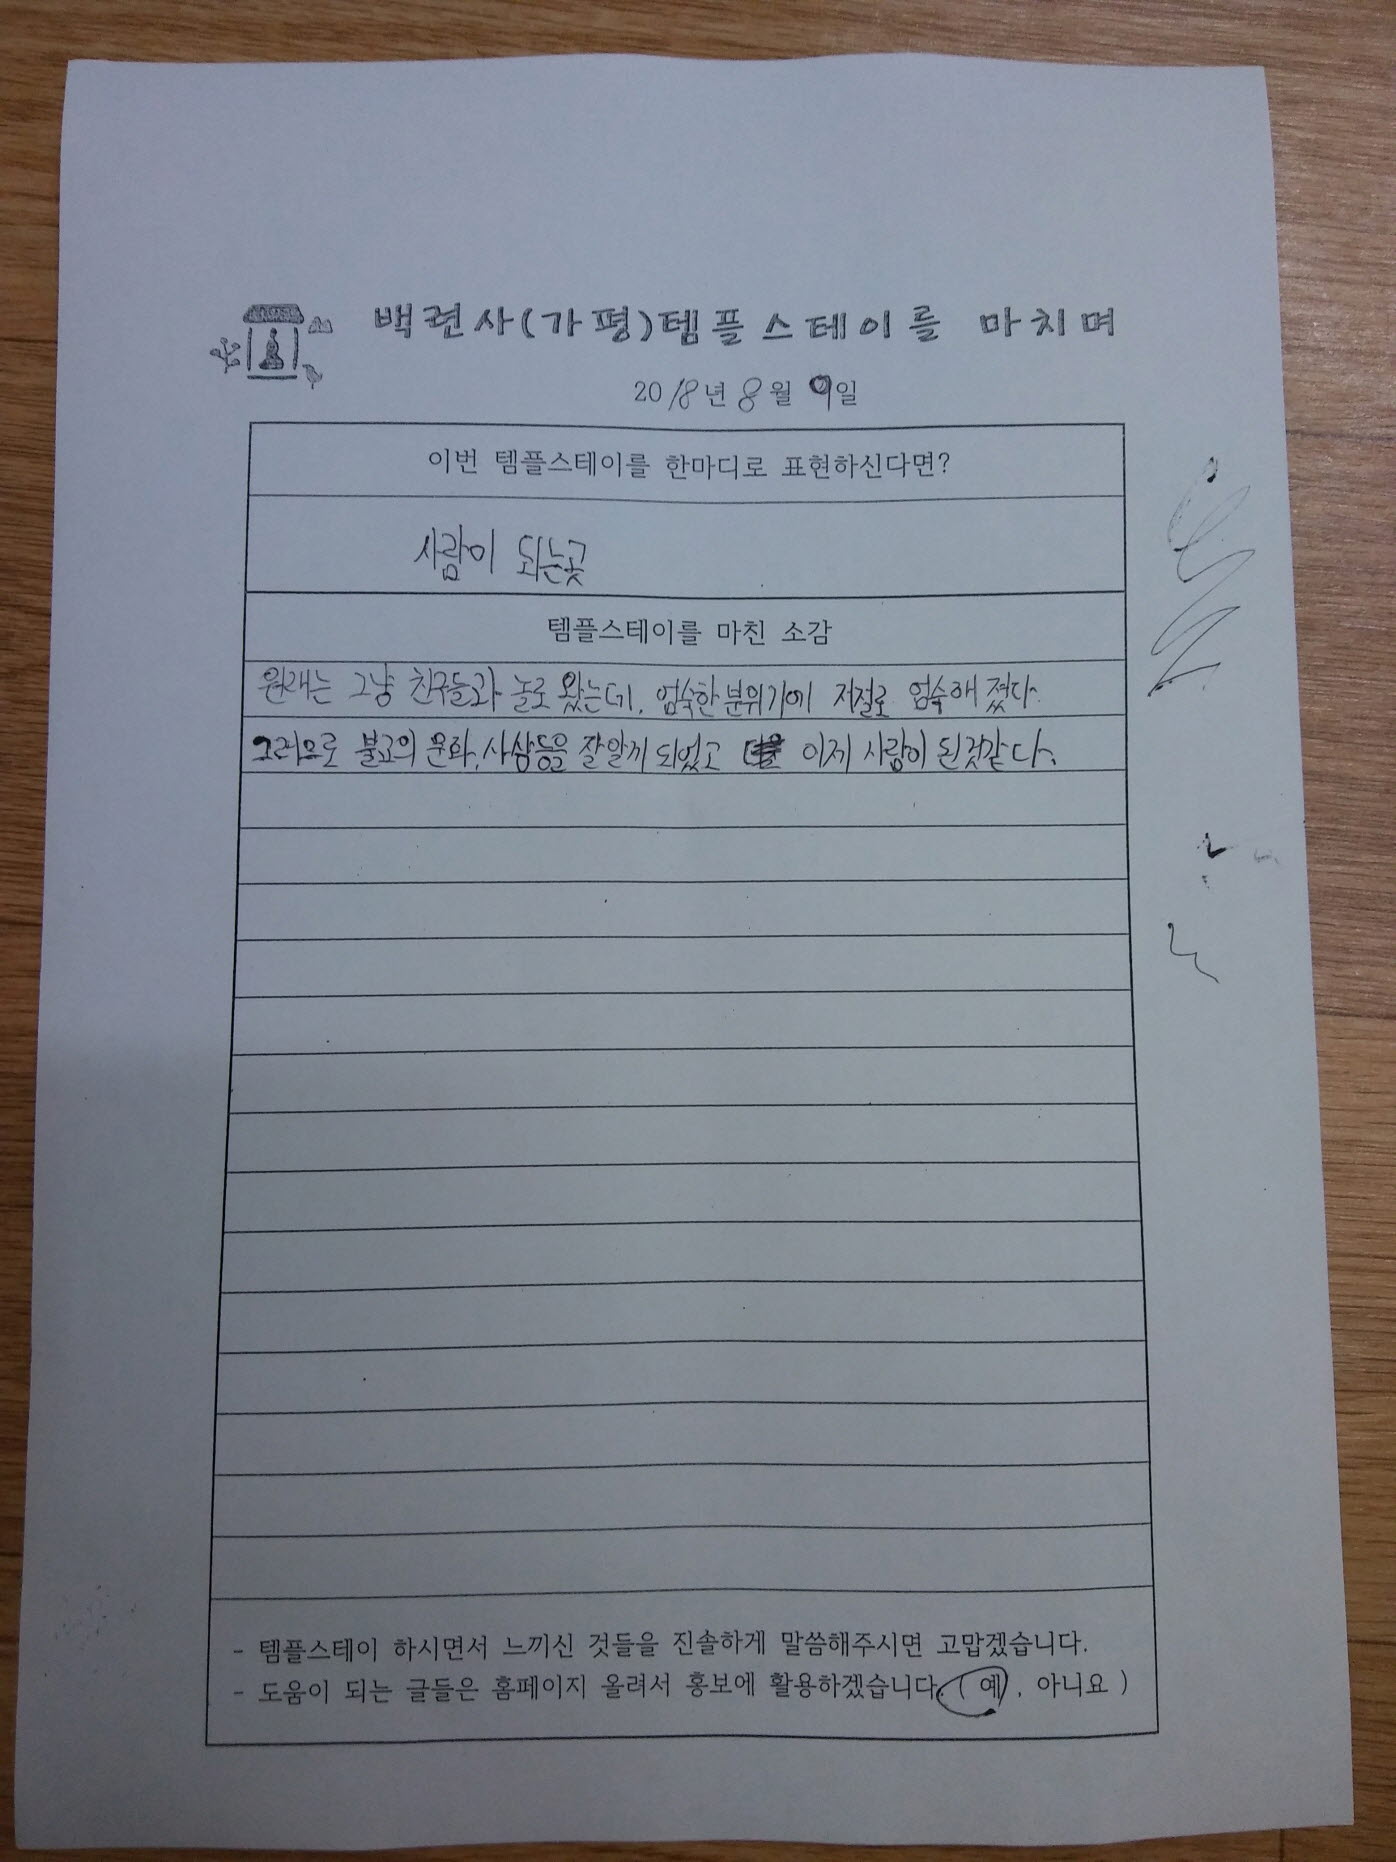 백련사(가평)템플스테이를 마치며
2018년 8월 9일
이번 템플스테이를 한마디로 표현하신다면?
사람이 되는곳
템플스테이를 마친 소감
원래는 그냥 친구들과 놀로 왔는데, 엄숙한 분위기에 저절로 엄숙해 졌다.
그러므로 불교의 문화, 사상등을 잘알게 되었고 이제 사람이 된것같다.
- 템플스테이 하시면서 느끼신 것들을 진솔하게 말씀해주시면 고맙겠습니다.
- 도움이 되는 글들은 홈페이지 올려서 홍보에 활용하겠습니다. ( 예 , 아니요 )